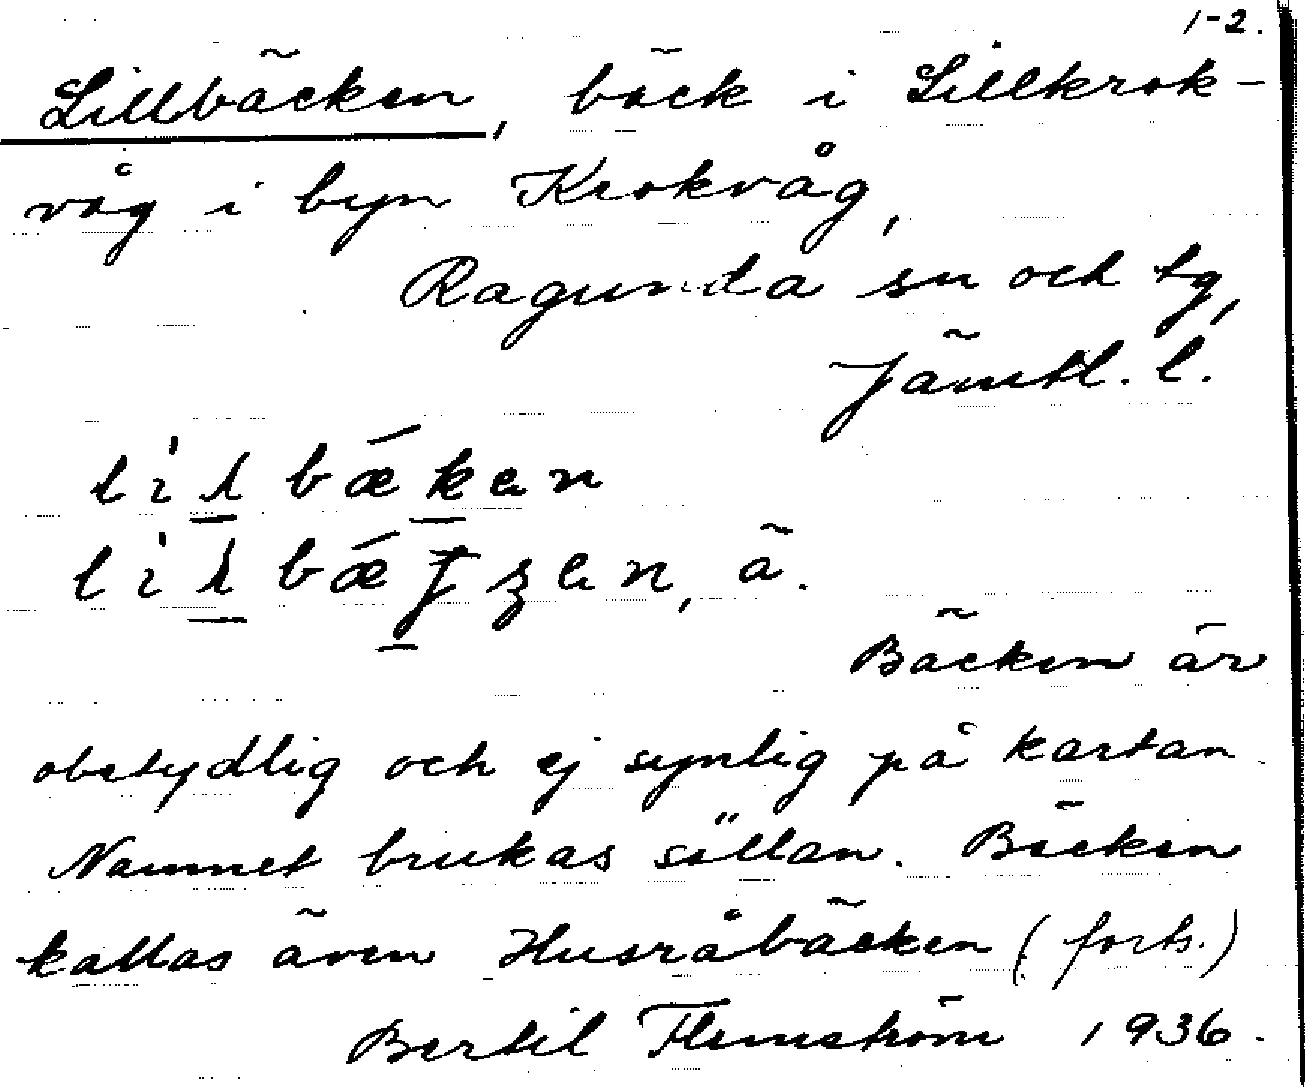 1-2.
Lillbäcken, bäck i Lillkrok-
våg i byn Krokvåg,
Ragunda sn och tg,
Jämtl. l.
Bäcken är
obetydlig och ej synlig på kartan
Namnet brukas sällan. Bäcken
kallas även Husråbäcken (forts.)
Bertil Flemström 1936.